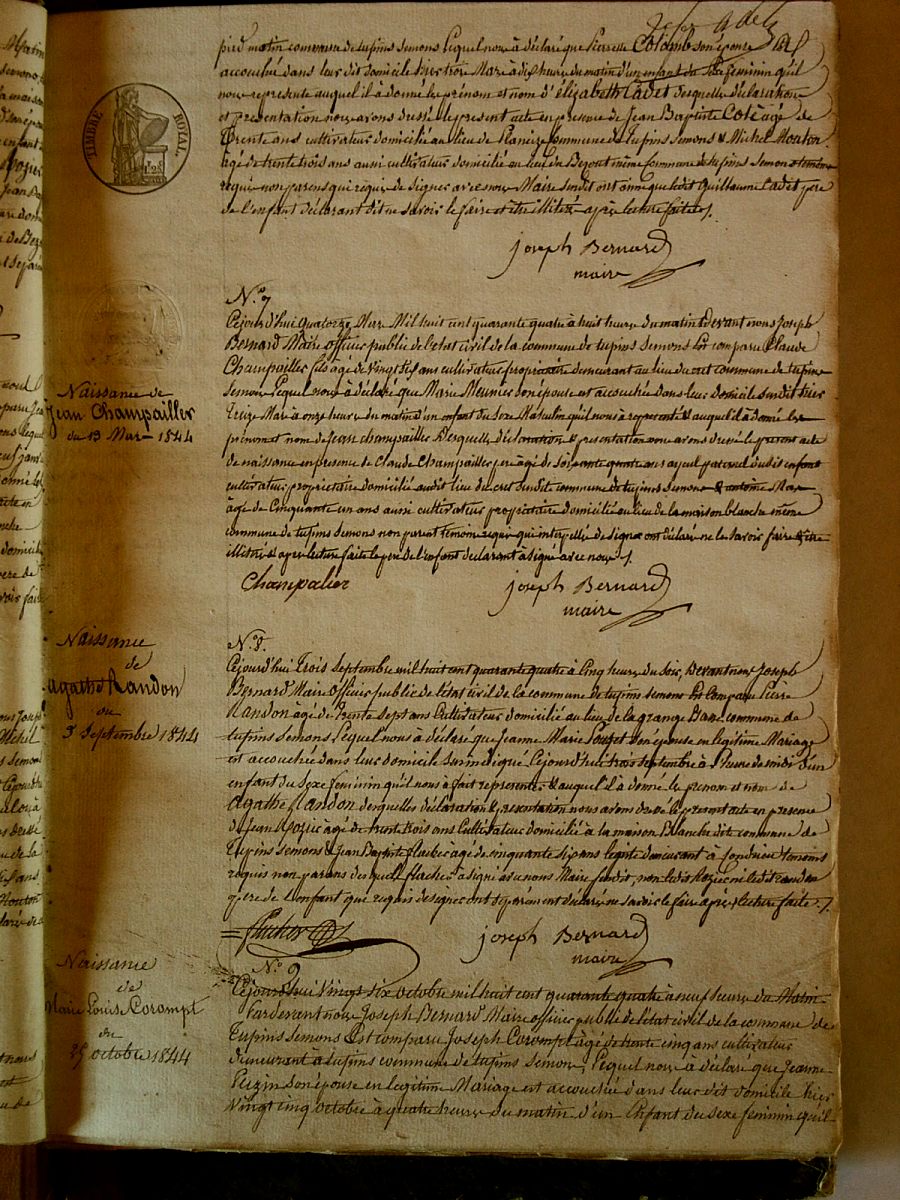 pied matin commune de tupins semons lequel nous à déclaré que Pierrette Colomb son épouse est
accouchée dans leur dit domicile hier trois Mars à dix heures du matin d'un enfant du sexe feminin qu'il
nous représente auquel il à donné les prénom et nom d'élizabeth Cadet desquelle déclaration
et présentation nous avons dressé le present acte en presence de Jean Baptiste Cote agé de
Trente ans cultivateur domicilié au lieu de commune de Tupins Semons & Michel Mouton
âgé de trente trois ans aussi cultivateur domicilié au lieu du même commune de tupins Semons témoins
requis non parens qui requis de signer avec nous Maire susdit ont ainsi que ledit Guillaume Cadet pere
de l'enfant déclarant dit ne savoir le faire et être illitéré après lecture faite ./.
joseph Bernard
maire
TIMBRE ROYAL
N.o 7
Cejourd'hui quatorze Mars Mil huit cent quarante quatre à huit heures du matin Devant nous Joseph
Bernard Maire officier public de l'état civil de la commune de tupins semons Est comparu Claude
Champailler fils âgé de vingt six ans cultivateur propriétaire demeurant au lieu du cret commune de tupins
semons lequel nous à déclaré que Marie Meunier son épouse est accouchée dans leur domicile susdit hier
treize Mars à onze heures du matin d'un enfant du sexe Masculin qu'il nous à représenté & auquel il à donné les
prénom et nom de Jean champailler Desquelle déclaration & presentation nous avons dressé le present acte
de naissance en presence de Claude Champailler pere âgé de soixante quatre ans ayeul paternel dudit enfant
cultivateur propriétaire domicilié audit lieu du cret susdite commune de tupins semons &
âgé de Cinquante un ans aussi cultivateur propriétaire domicilié au lieu de la maison blanche même
commune de tupins semons non parent témoins requis qui interpellé de signer ont déclaré ne le savoir faire & être
illitéré & après lecture faite le pere de l'enfant declarant à signé avec nous ./.
Champalier
joseph Bernard
maire
Naissance de
Jean Champailler
du 13 Mars 1844
N.o 8.
Cejourd'hui Trois Septembre mil huit cent quarante quatre à Cinq heures du soir, Devant nous Joseph
Bernard Maire officier public de l'état civil de la commune de tupins semons Est Comparu Pierre
Randon âgé de Trente Sept ans Cultivateur domicilié au lieu de la grange Basse commune de
tupins semons lequel nous à déclaré que Jeanne Marie Son épouse en legitime Mariage
est accouchée dans leur domicile Cejourd'hui trois septembre à heure de midi d'un
enfant du sexe feminin qu'il nous à fait representer & auquel il à donné le prenom et nom de
Agathe Randon desquelles déclaration & presentation nous avons dressé le present acte en presence
de Jean Mozier âgé de trente trois ans Cultivateur domicilié à la maison Blanche dite commune de
Tupins Semons & Jean Baptiste âgé de cinquante six ans demeurant à Condrieu temoins
requis non parens desquels à signé avec nous Maire susdit, non ledit Mozier ni ledit randon
pere de l'enfant que requis de signer ont séparément déclaré ne savoir le faire après lecture faite ./.
joseph Bernard
maire
Naissance
de
agathe Randon
du
3 Septembre 1844
N.o 9
Cejourd'hui Vingt six octobre mil huit cent quarante quatre à neuf heures du Matin
Pardevant nous Joseph Bernard Maire officier public de l'état civil de la commune de
Tupins Semons Est comparu Joseph Corompt âgé de trente cinq ans cultivateur
demeurant à tupins commune de tupins semons, lequel nous à déclaré que Jeanne
Puzin Son épouse en legitime Mariage est accouchée dans leur dit domicile hier
vingt cinq octobre à quatre heures du matin d'un Enfant du sexe feminin qu'il
Naissance
de
Marie Louise Corompt
du
25 octobre 1844